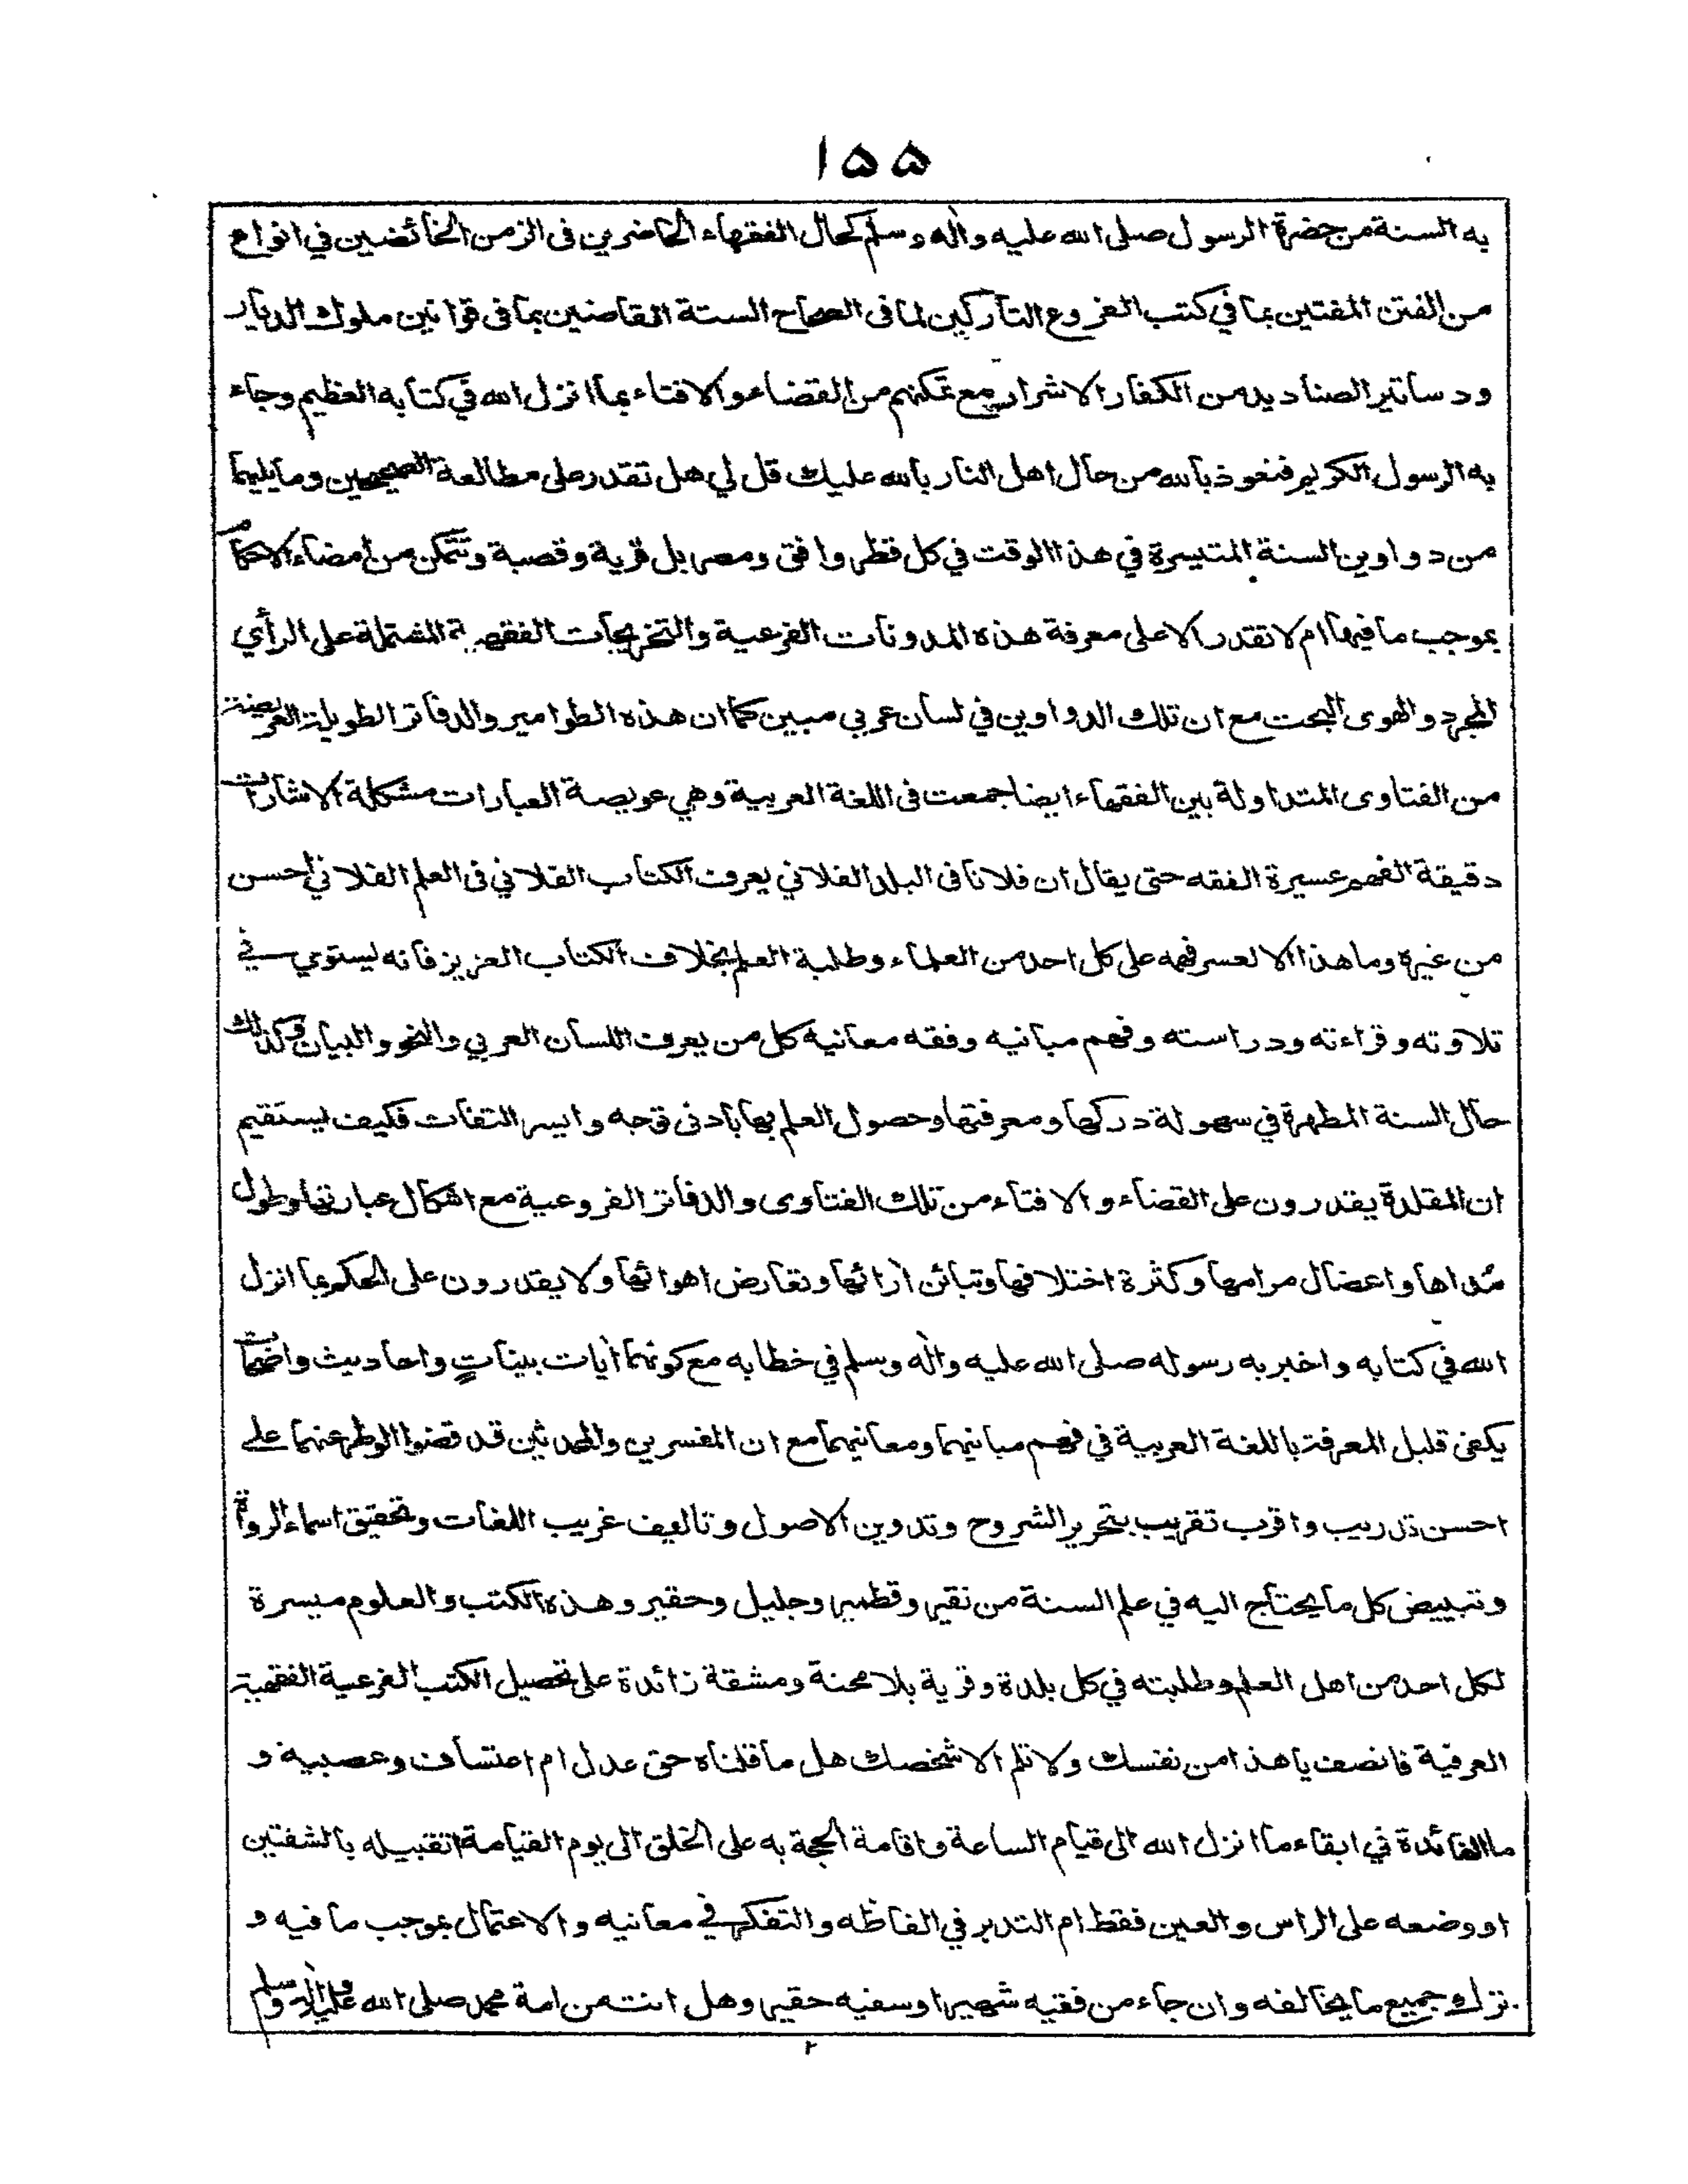 ١٥٥
به السنة من حضرة الرسول صلى الله عليه واٰله وسلم كحال الفقهاء الحاضرين فى الزمن الخائضين في انواع
من الفتن المفتين بما في كتب الفروع التاركين لما فى الصحاح الستة القاضين بما فى قوانين ملوك الديار
ودساتير الصناديد من الكفار الاشرار مع تمكنهم من القضاء والافتاء بما انزل الله في كتابه العظيم وجاء
به الرسول الكريم فنعوذ بالله من حال اهل النار بالله عليك قل لي هل تقدر على مطالعة الصحيحين وما يليهما
من دواوين السنة المتيسرة في هذا الوقت في كل قطر وافق ومصر بل قرية وقصبة وتتمكن من امضاء الاحكام
بموجب ما فيها ام لا تقدر الا على معرفة هذه المدونات الفرعية والتخريجات الفقهية المشتملة على الرأي
المجرد والهوى البحت مع ان تلك الدواوين في لسان عربي مبين كما ان هذه الطوامير والدفاتر الطويلة العريضة
من الفتاوى المتداولة بين الفقهاء ايضا جمعت فى اللغة العربية وهي عويصة العبارات مشكلة الاشارات
دقيقة الفهم عسيرة الفقه حتى يقال ان فلانا فى البلد الفلاني يعرف الكتاب الفلاني فى العلم الفلاني احسن
من غيره وما هذا الا لعسر فهمه على كل احد من العلماء وطلبة العلم بخلاف الكتاب العزيز فانه يستوي في
تلاوته وقراءته ودراسته وفهم مبانيه وفقه معانيه كل من يعرف اللسان العربي والنحو والبيان وكذلك
حال السنة المطهرة في سهولة دركها ومعرفتها وحصول العلم بها بادنى توجه وايسر التفات فكيف يستقيم
ان المقلدة يقدرون على القضاء والافتاء من تلك الفتاوى والدفاتر الفروعية مع اشكال عبارتها وطول
مُداها واعضال مرامها وكثرة اختلافها وتبائن اٰرائها وتعارض اهوائها ولا يقدرون على الحكم بما انزل
الله في كتابه واخبر به رسوله صلى الله عليه واٰله وسلم في خطابه مع كونهما اٰيات بيناتٍ واحاديث واضحات
يكفى قليل المعرفة باللغة العربية في فهم مبانيهما ومعانيهما مع ان المفسرين والمحدثين قد قضوا الوطر عنهما على
احسن تدريب واقرب تقريب بتحرير الشروح وتدوين الاصول وتاليف غريب اللغات وتحقيق اسماء الرواة
وتبييض كل ما يحتاج اليه في علم السنة من نقير وقطمير وجليل وحقير وهذه الكتب والعلوم ميسرة
لكل احد من اهل العلم وطلبته في كل بلدة وقرية بلا محنة ومشقة زائدة على تحصيل الكتب الفرعية الفقهية
العرفية فانصف يا هذا من نفسك ولا تلم الا شخصك هل ما قلناه حق عدل ام اعتساف وعصبية و
ما الفائدة في ابقاء ما انزل الله الى قيام الساعة واقامة الحجة به على الخلق الى يوم القيامة اتقبيله بالشفتين
او وضعه على الراس والعين فقط ام التدبر في الفاظه والتفكر في معانيه والاعتمال بموجب ما فيه و
ترك جميع ما يخالفه وان جاء من فقيه شهير او سفيه حقير وهل انت من امة محمد صلى الله عليه واٰله وسلم
٢